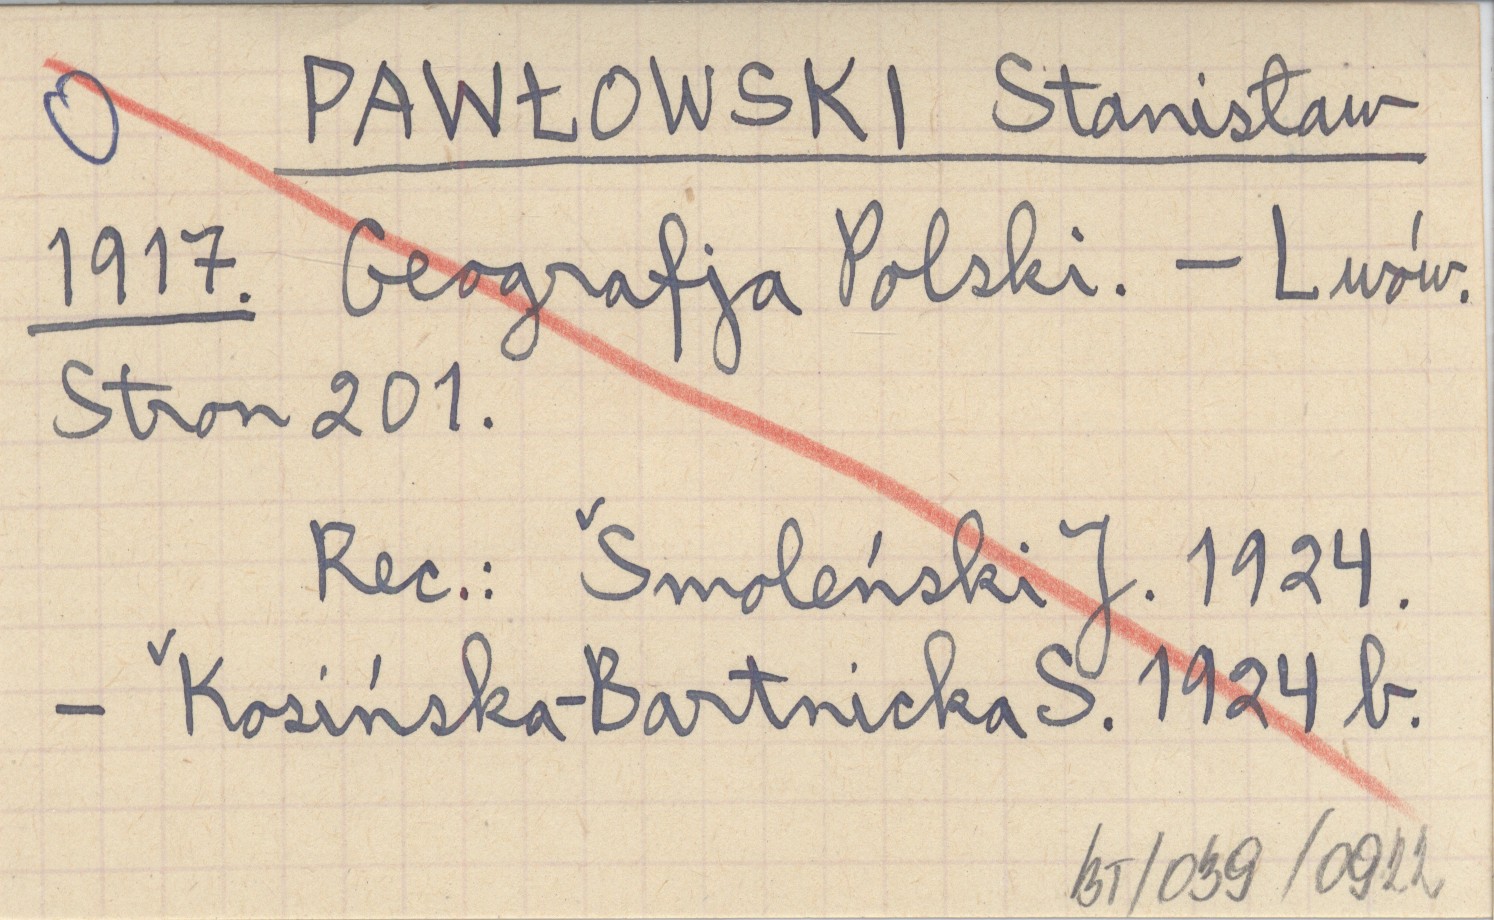 PAWŁOWSKI Stanisław
1917. Geografja Polski. – Lwów.
Stron 201.
Rec.: Smoleński J. 1924.
– Kosińska-Bartnicka S. 1924 b.
BT/039/0922